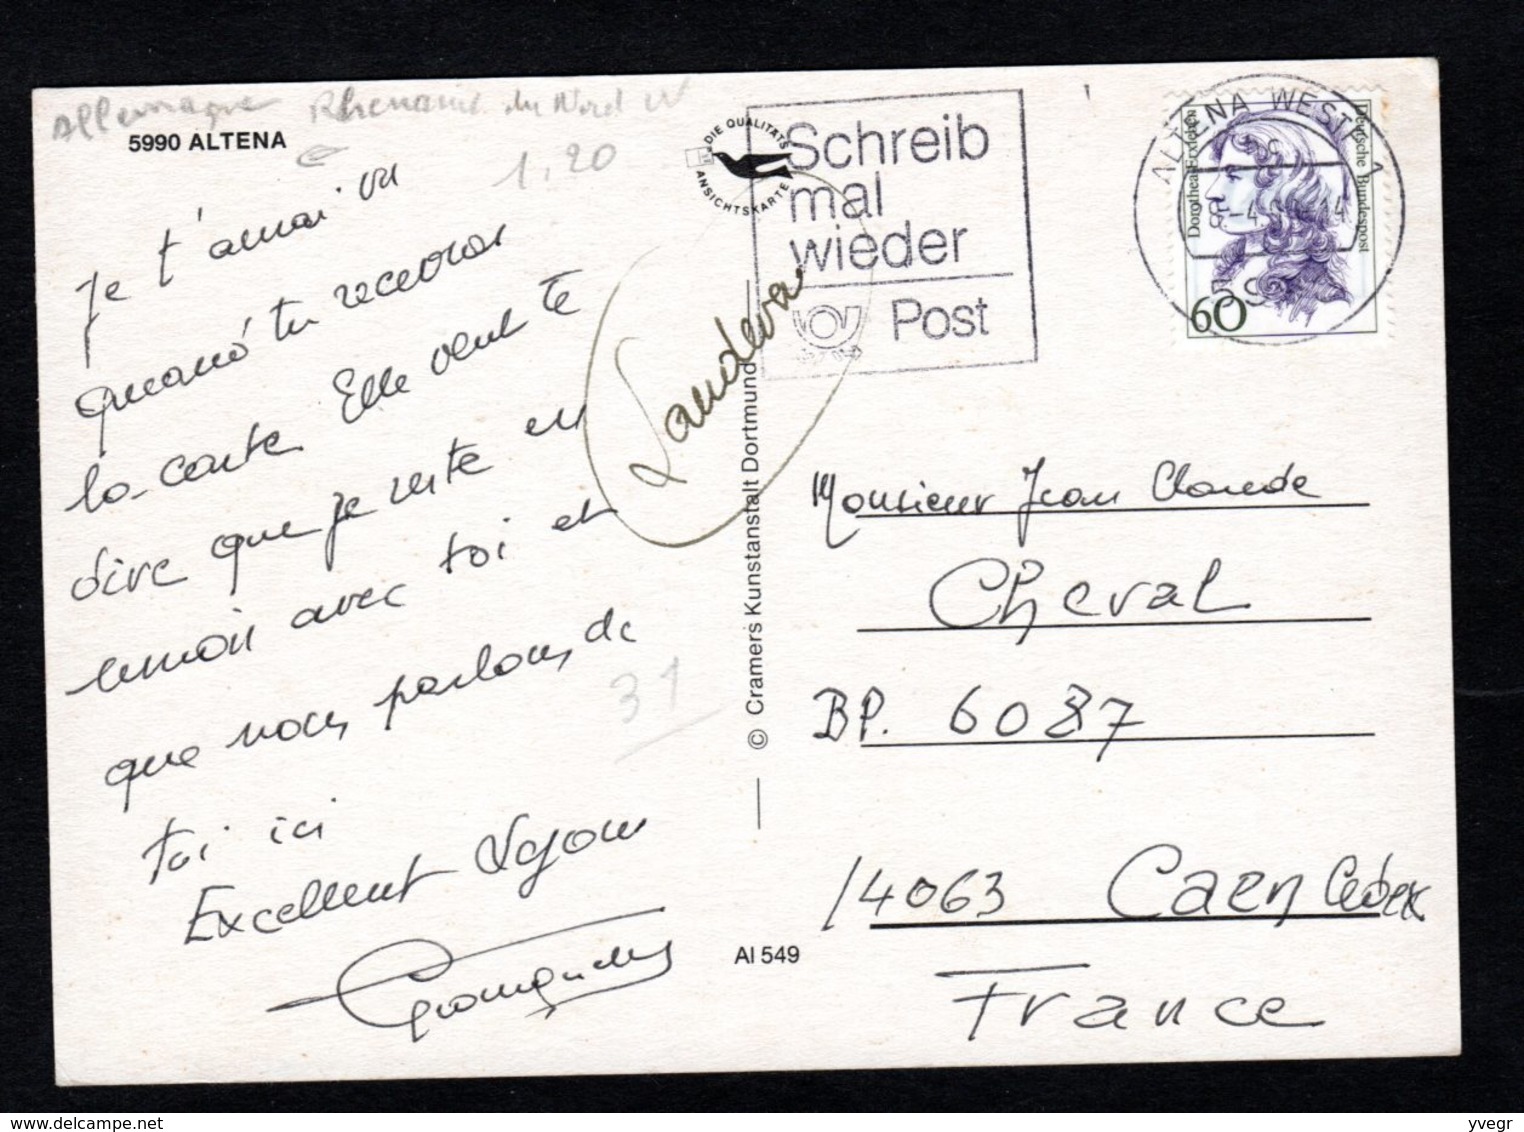 Allemagne Rhénanie du Nord W
5990 ALTENA
1,20
Je t'aurai vu
quand tu recevras
la carte. Elle veut te
dire que je reste en
union avec toi et
que nous parlons de
toi ici
Excellent séjour
31
DIE QUALITÄTS
ANSICHTSKARTE
Schreib
mal
wieder
Post
ALTENA WESTF 1
Dorothea Erxleben
Deutsche Bundespost
60
© Cramers Kunstanstalt Dortmund
AI 549
Monsieur Jean Claude
Cheval
BP. 6087
14063 Caen Cedex
France
yvegr